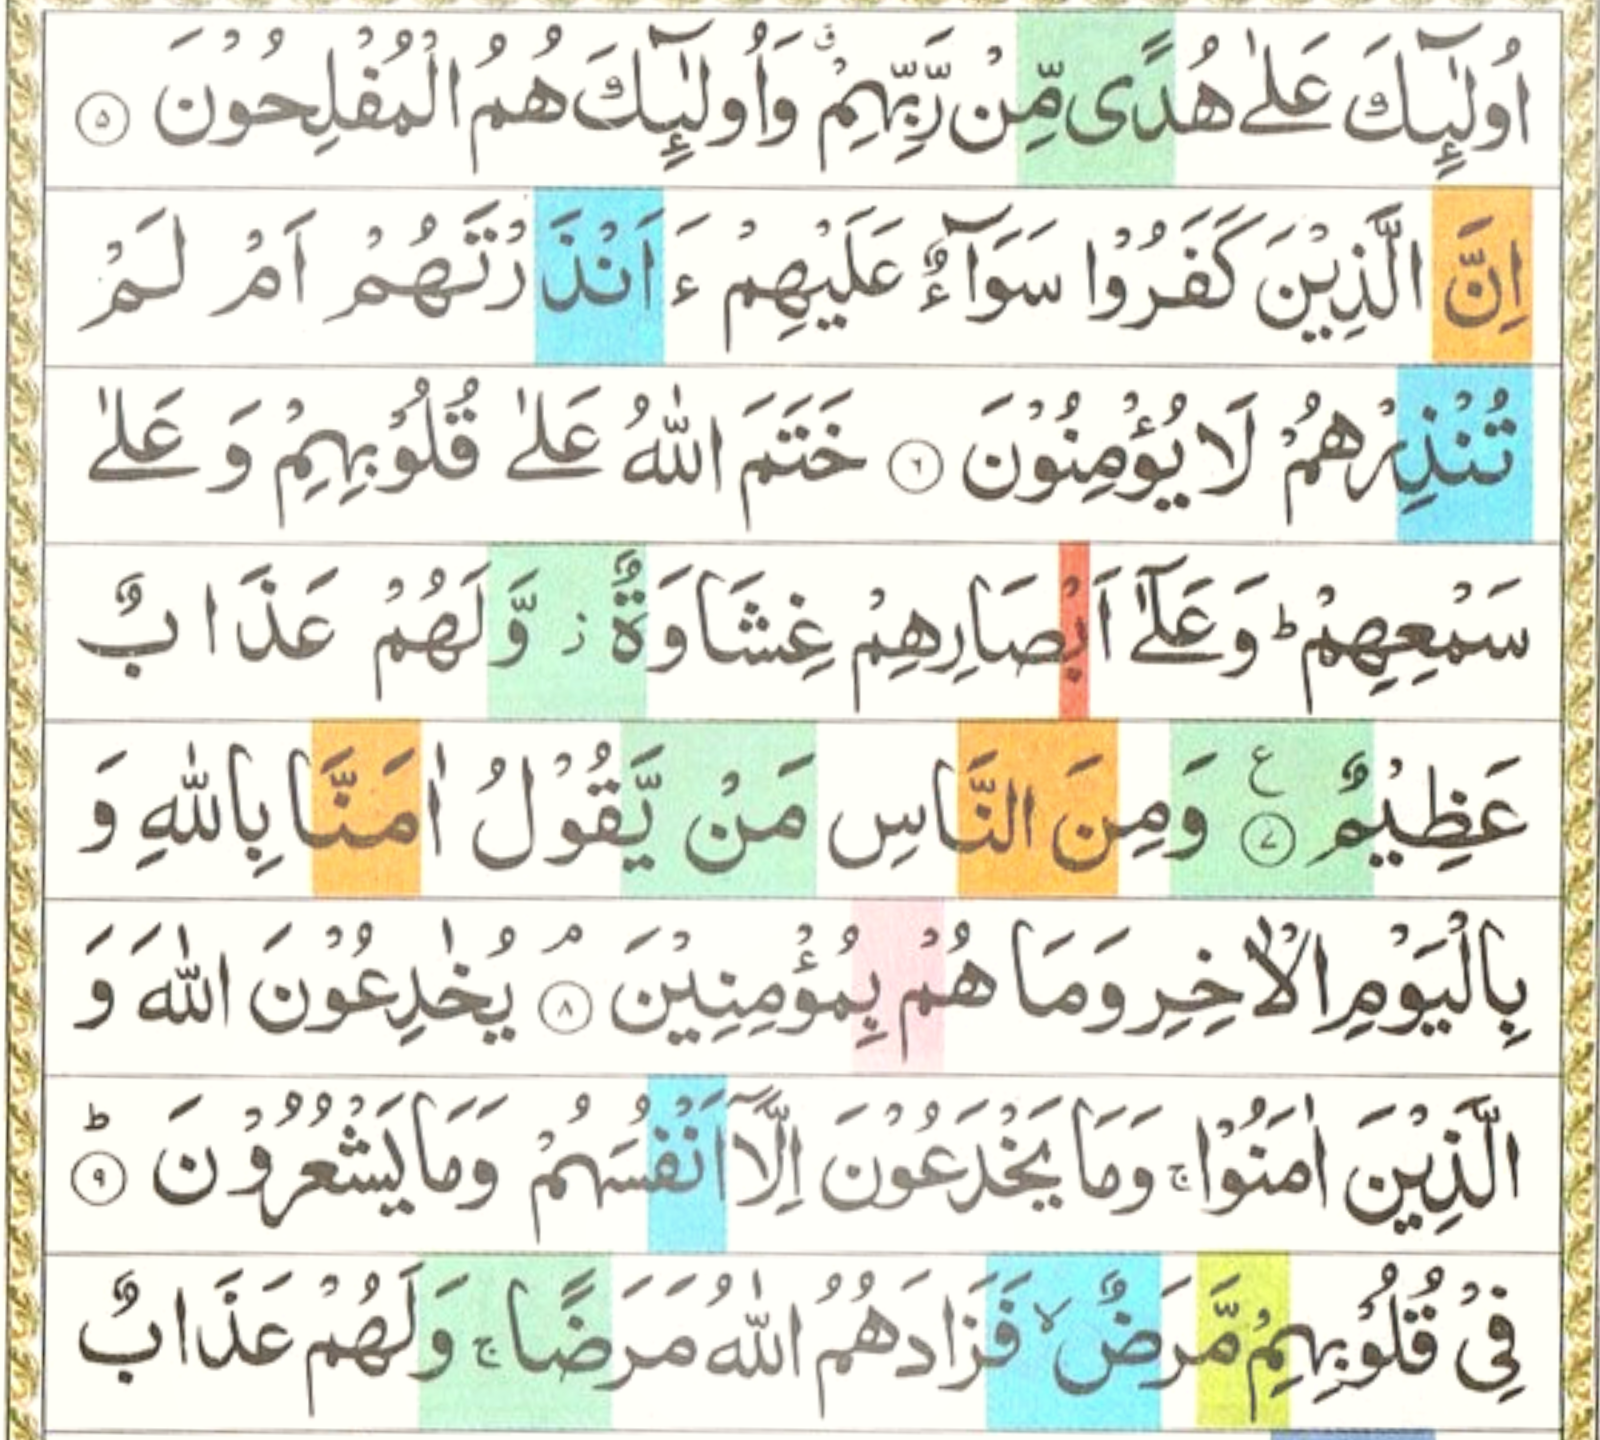 اُولٰٓئِكَ عَلٰى هُدًى مِّنْ رَّبِّهِمْ ۗ وَاُولٰٓئِكَ هُمُ الْمُفْلِحُوْنَ ۵
اِنَّ الَّذِيْنَ كَفَرُوْا سَوَآءٌ عَلَيْهِمْ ءَ اَنْذَرْتَهُمْ اَمْ لَمْ
تُنْذِرْهُمْ لَا يُؤْمِنُوْنَ ٦ خَتَمَ اللّٰهُ عَلٰى قُلُوْبِهِمْ وَ عَلٰى
سَمْعِهِمْ ؕ وَعَلٰٓى اَبْصَارِهِمْ غِشَاوَةٌ ز وَّلَهُمْ عَذَابٌ
عَظِيْمٌ ع ٧ وَمِنَ النَّاسِ مَنْ يَّقُوْلُ اٰمَنَّا بِاللّٰهِ وَ
بِالْيَوْمِ الْاٰخِرِ وَمَا هُمْ بِمُؤْمِنِيْنَ ۘ ٨ يُخٰدِعُوْنَ اللّٰهَ وَ
الَّذِيْنَ اٰمَنُوْا ۚ وَمَا يَخْدَعُوْنَ اِلَّاۤ اَنْفُسَهُمْ وَمَا يَشْعُرُوْنَ ؕ ٩
فِيْ قُلُوْبِهِمْ مَّرَضٌ ۙ فَزَادَهُمُ اللّٰهُ مَرَضًا ۚ وَلَهُمْ عَذَابٌ